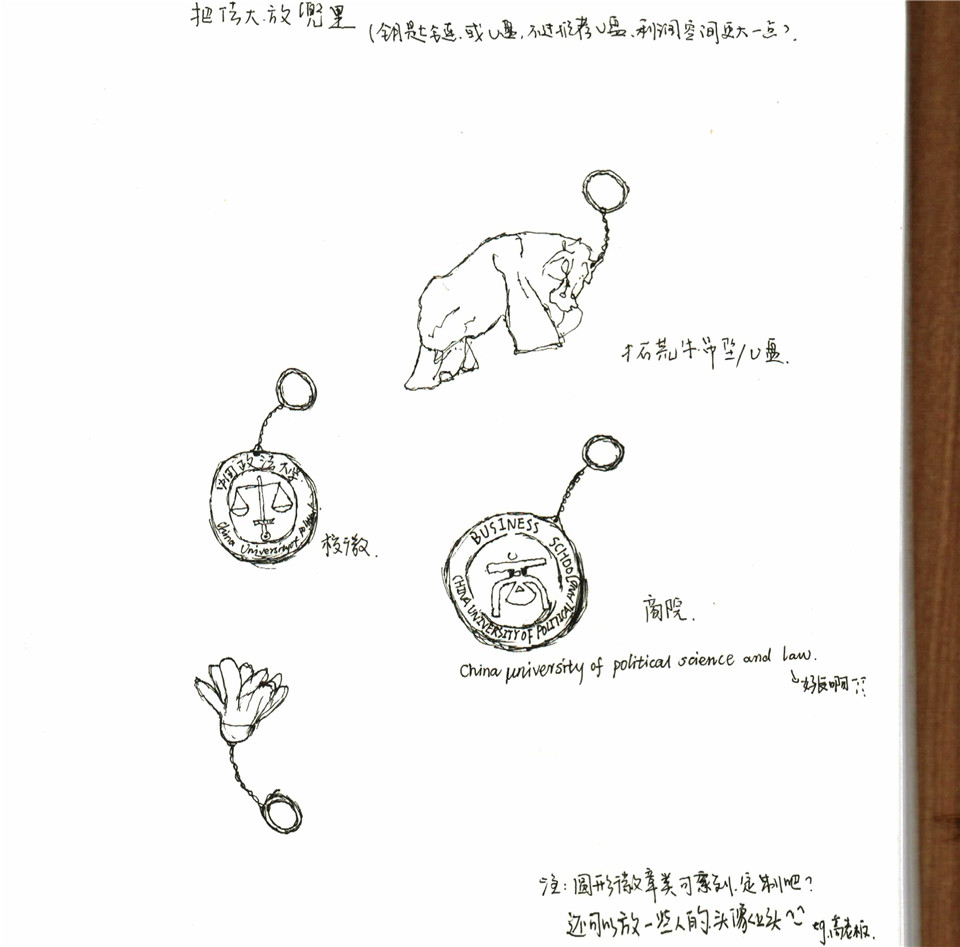 把法大放兜里
(钥匙链或U盘,不过推荐U盘,利润空间更大一点).
拓荒牛吊坠/U盘.
中国政法大学
China University of Political
校徽.
BUSINESS SCHOOL
CHINA UNIVERSITY OF POLITICAL AND
商院.
China university of political science and law.
好长啊
注:圆形徽章类可拿到定制吧?
还可以放一些人的头像么
eg.高老板.